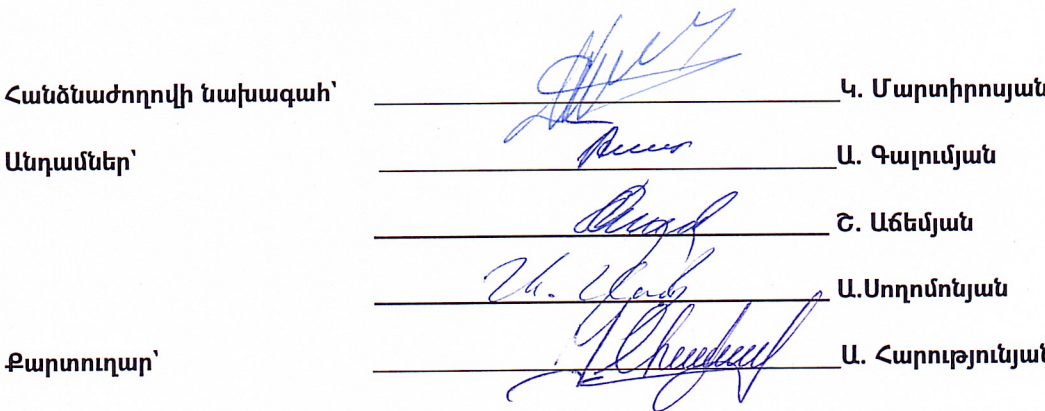 Հանձնաժողովի նախագահ՝ Կ. Մարտիրոսյան
Անդամներ՝ Ա. Գալումյան
Շ. Աճեմյան
Ա.Սողոմոնյան
Քարտուղար՝ Ա. Հարությունյան